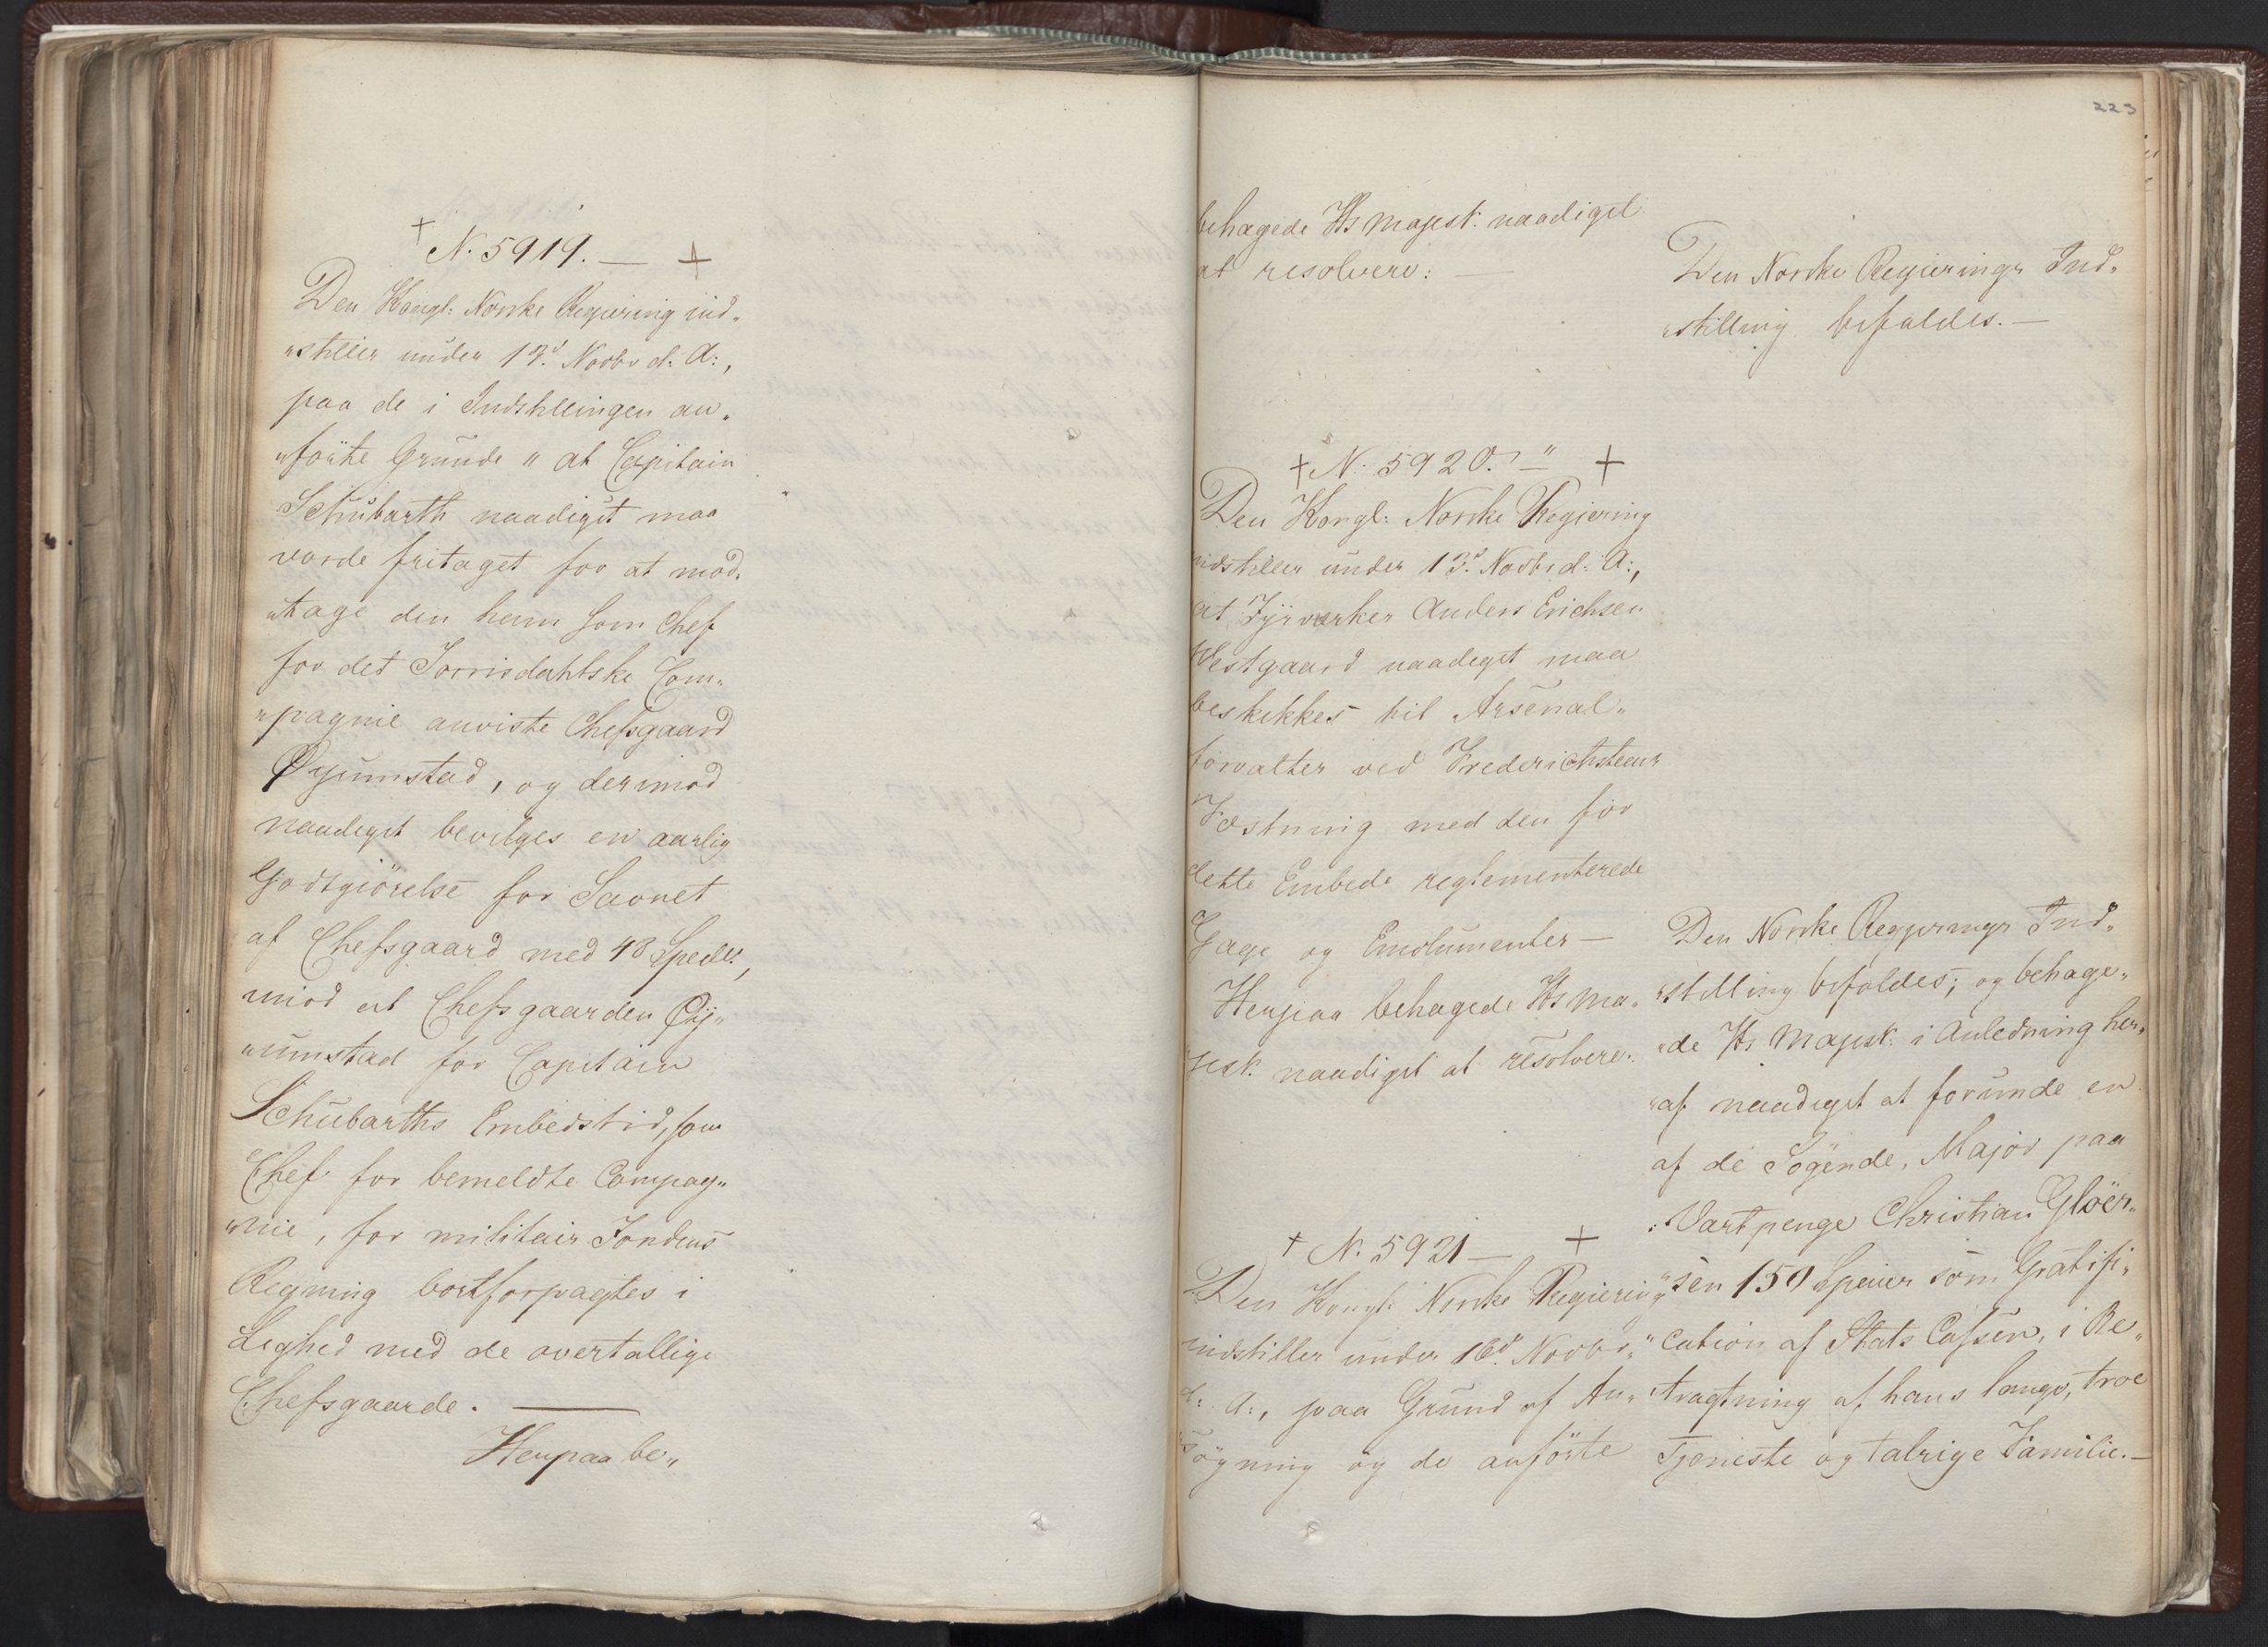 † N. 5919. — †
Den Kongl: Norske Regiering ind„
„stiller under 13d. Novbr d: A:,
paa de i Indstillingen an„
„förte Grunde „ at Capitain
Schübarth naadigst maa
vorde fritaget for at mod„
„tage den ham som Chef
for det Torrisdahlske Com„
„pagnie anviste Chefsgaard
Øyumstad, og derimod
naadigst bevilges en aarlig
Godtgiörelse for Savnet
af Chefsgaard med 48 Specdlr,
mod at Chefsgaarden Øy„
„umstad for Capitain
Schübarths Embedstid, som
Chef for bemeldte Compag„
„nie, for militair Fondens
Regning bortforpagtes i
Lighed med de overtallige
Chefsgaarde. —
Herpaa be„
223
behagede Hs Majest: naadigst
at resolvere: —
Den Norske Regierings Ind„
„stilling bifaldes. —
† N: 5920. „ †
Den Kongl: Norske Regiering
indstiller under 13d. Novbr d: A:,
at Fyrværker Anders Erichsen
Westgaard naadigst maa
beskikkes til Arsenal„
forvalter ved Frederichsteens
Fæstning med den for
dette Embede reglementerede
Gage og Emolumenter —
Herpaa behagede Hs Ma„
jest. naadigst at resolvere:
Den Norske Regierings Ind„
„stilling bifaldes; og behage„
„de Hs Majest: i Anledning her„
„af naadigst at forunde en
af de Søgende, Major paa
Vartpenge Christian Glöer„
„sen 150 Specier som Gratifi„
„cation af Stats Cassen, i Be„
„tragtning af hans lange, troe
Tjeneste og talrige Familie. —
† N. 5921 — †
Den Kongl: Norske Regiering
indstiller under 16d. Novbr„
d: A:, paa Grund af An„
„søgning og de anförte